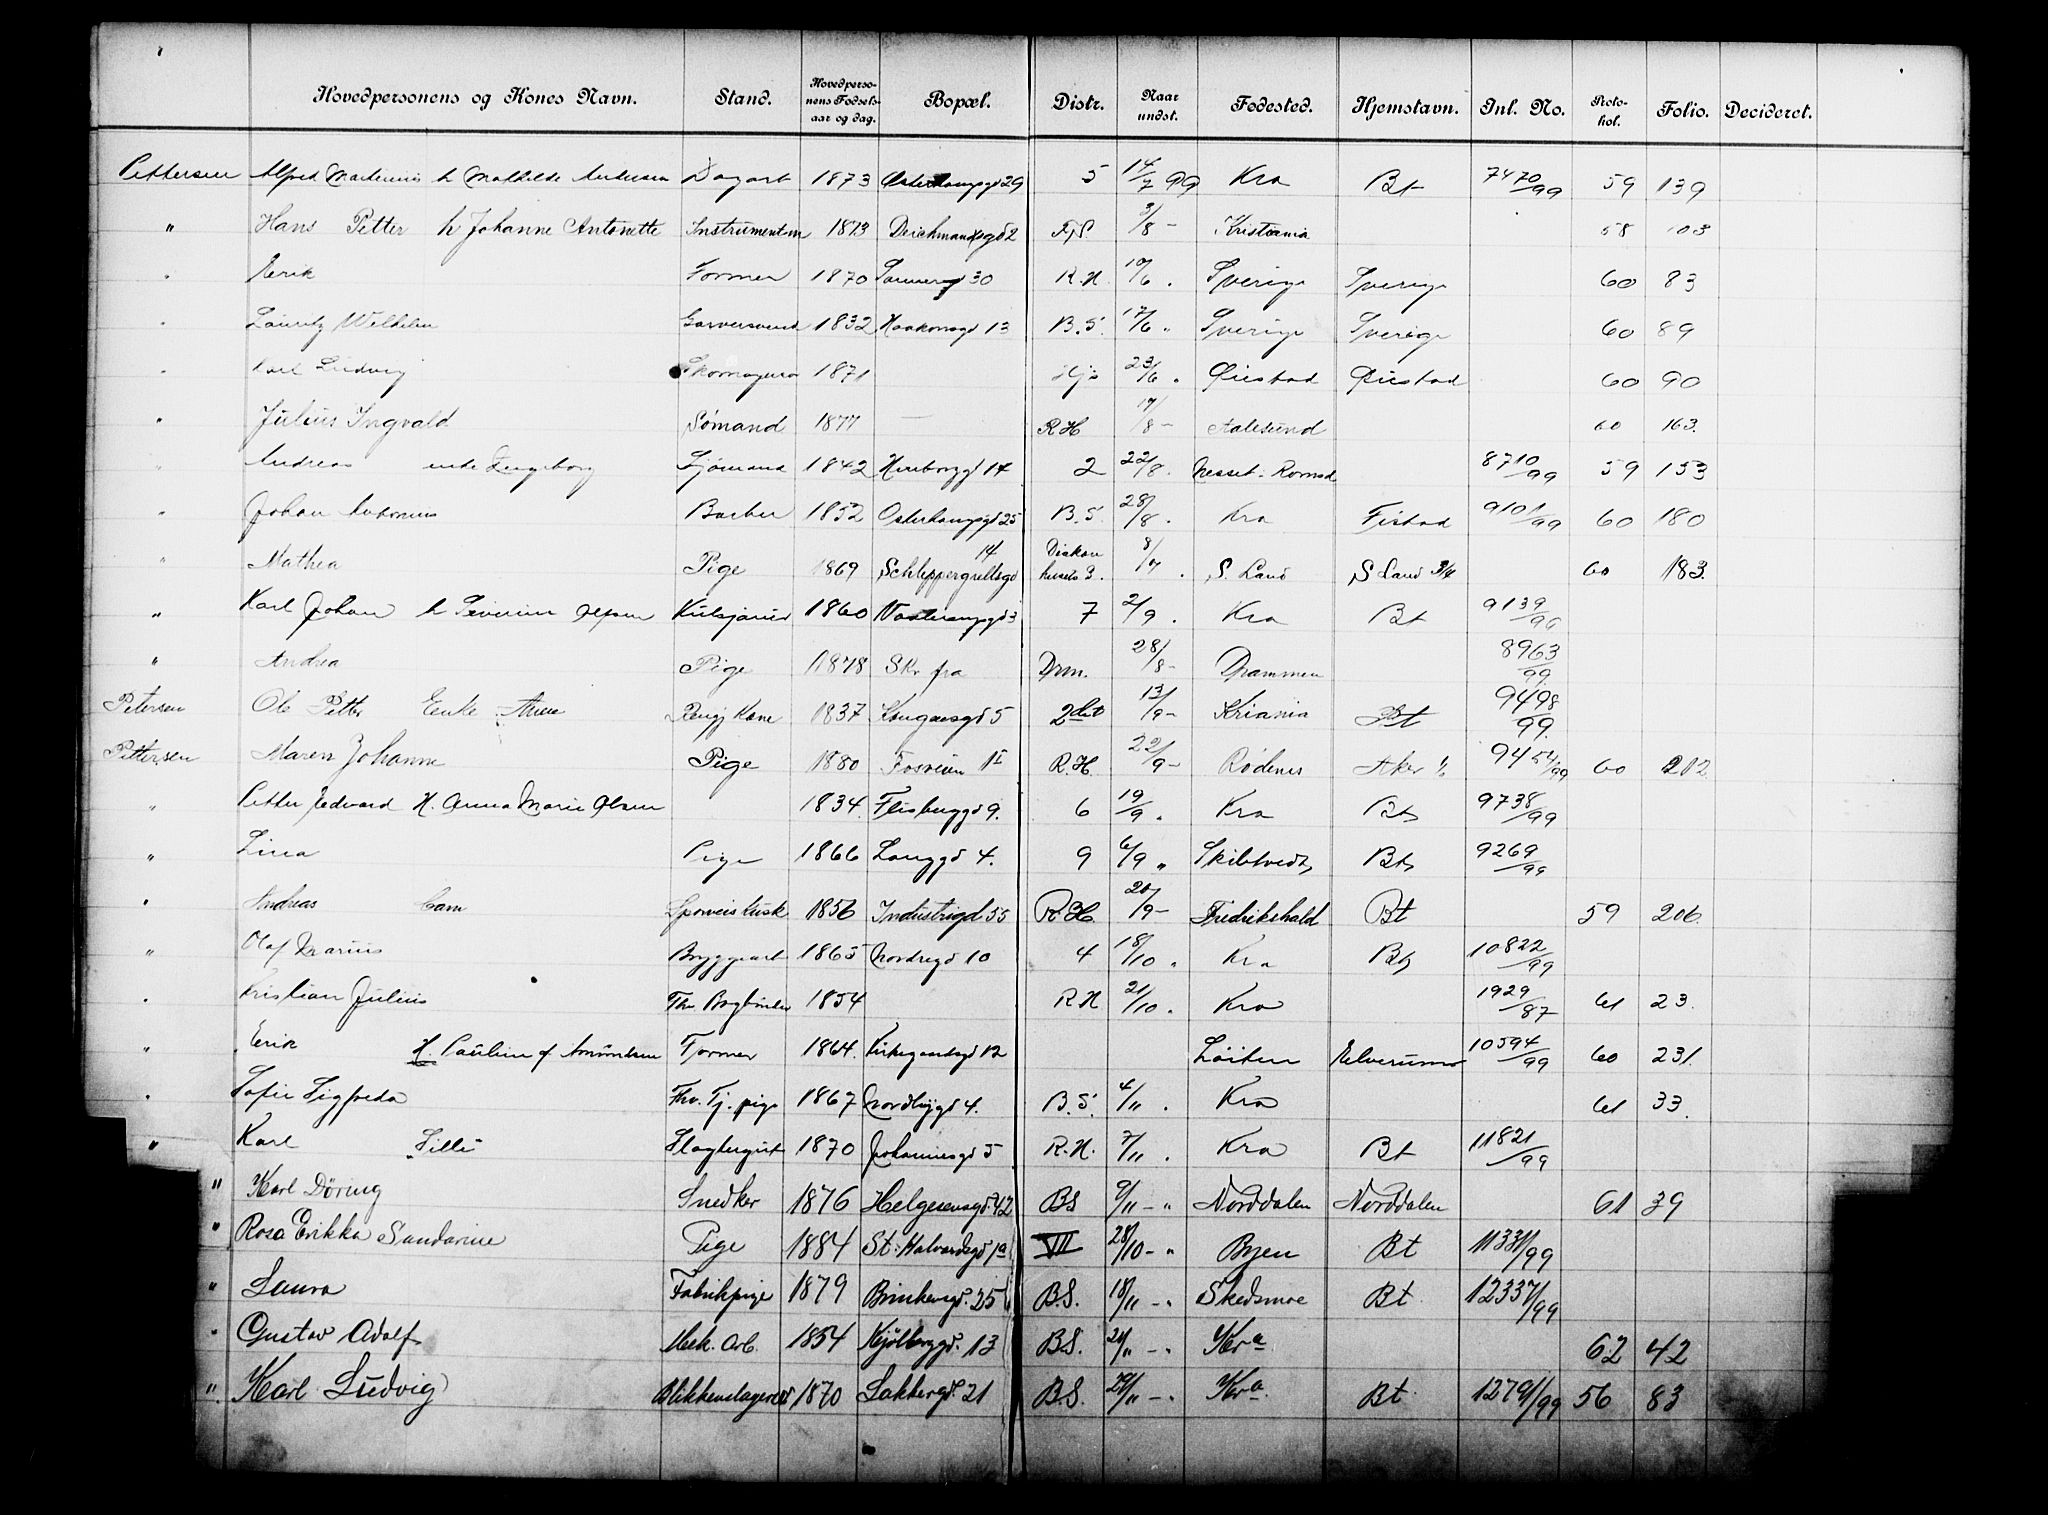 Hovedpersonens og Kones Navn. Stand. Hovedpersonens Fødselsaar og dag. Bopæl. Distr. Naar undst. Fødested. Hjemstavn. Inl. No. Protokol. Folio. Decideret.
Pettersen Alfred Martinius h Mathilde Andersen Dagarb 1873 Østerhausgd 29 5 14/7 99 Kra Bt 7470/99 59 139
" Hans Petter h Johanne Antonette Instrumentm 1873 Deichmandsgd 2 3/8 - Kristiania 58 103
" Erik Former 1870 Sannergd 30 R.H. 10/6 . Sverige Sverige 60 83
" Lauritz Wilhelm Garversvend 1832 Haakonsgd 13 B.S. 17/6 " Sverige Sverige 60 89
" Karl Ludvig Skomagersv 1871 23/6 " Øiestad Øiestad 60 90
" Julius Ingvald Sømand 1877 — R.H 17/8 - Aalesund 60 163.
" Andreas enke Ingeborg Sjømand 1842 14 2 22/8 . Nesset. Romsd 8710/99 59 153
" Johan Antonius Barber 1852 Osterhausgd 25 B.S. 28/8 . Kra 9101/99 60 180
" Mathea Pige 1869 Schleppergrellsgd 14 Diakonhusets 3. 8/7 . S. Land S Land 3/4 60 183.
" Karl Johan h Severine Olsen 1860 3 7 2/9 . Kra Bt 9139/96
" Andrea Pige 1878 Skr fra Drm. 28/8 - Drammen 8963/99.
Petersen Ole Petter Enke Anne Rengj Kone 1837 Kongensgd 5 2det 13/9 - Kriania Bt 9498/99.
Pettersen Maren Johanne Pige 1880 Fosveien R.H. 22/9 - Rødenes Aker 9454/99 60 212
" Petter Edvard H. Anna Marie Olsen 1834. Flisberggd 9. 6 19/9 . Kra Bt 9738/99
" Lina Pige 1866 Langgd 4. 9 6/9 " Skibtvedt Bt 9269/99
" Andreas Sporveiskusk 1856 Industrigd 55 R.H. 20/9 - Fredrikshald Bt 59 206.
" Olaf Marius Bryggearb 1865 Nordregd 10 4 18/10 " Kra Bt 10822/99
" Kristian Julius Fhv. Bogbinder 1854 R.H 21/10 . Kra 1929/87 61 23.
" Erik H. Pauline f Amundsen Former 1864. Kirkegaardsgd 12 Løiten Elverum 10594/99 60 231.
" Sofie Sigfreda Fhv. Tj. pige 1867 Nordbygd 4. B.S. 4/11 . Kra 61 33.
" Karl Slagtergut 1870 Johannesgd 5 R.H. 7/11 . Kra Bt 11821/99
" Karl Döring Snedker 1876 Helgesensgd. 42 BS 9/11 - " Norddalen Norddalen 61 39
" Rosa Erikka Sandarine Pige 1884 St. Halvardsgd 1a VII 28/10 - " Byen Bt 11331/99
" Laura Fabrikpige 1879 Brinkensgd. 25 B.S. 18/11 - " Skedsmoe Bt 12337/99
" Gustav Adolf Mek. Arb. 1854 Kjölberggd. 13 B.S. 21/11 - " Kra 62 42
" Karl Ludvig Blikkenslagersv 1870 Lakkergd. 21 B.S. 29/11 - " Kra Bt 12791/99 56 83